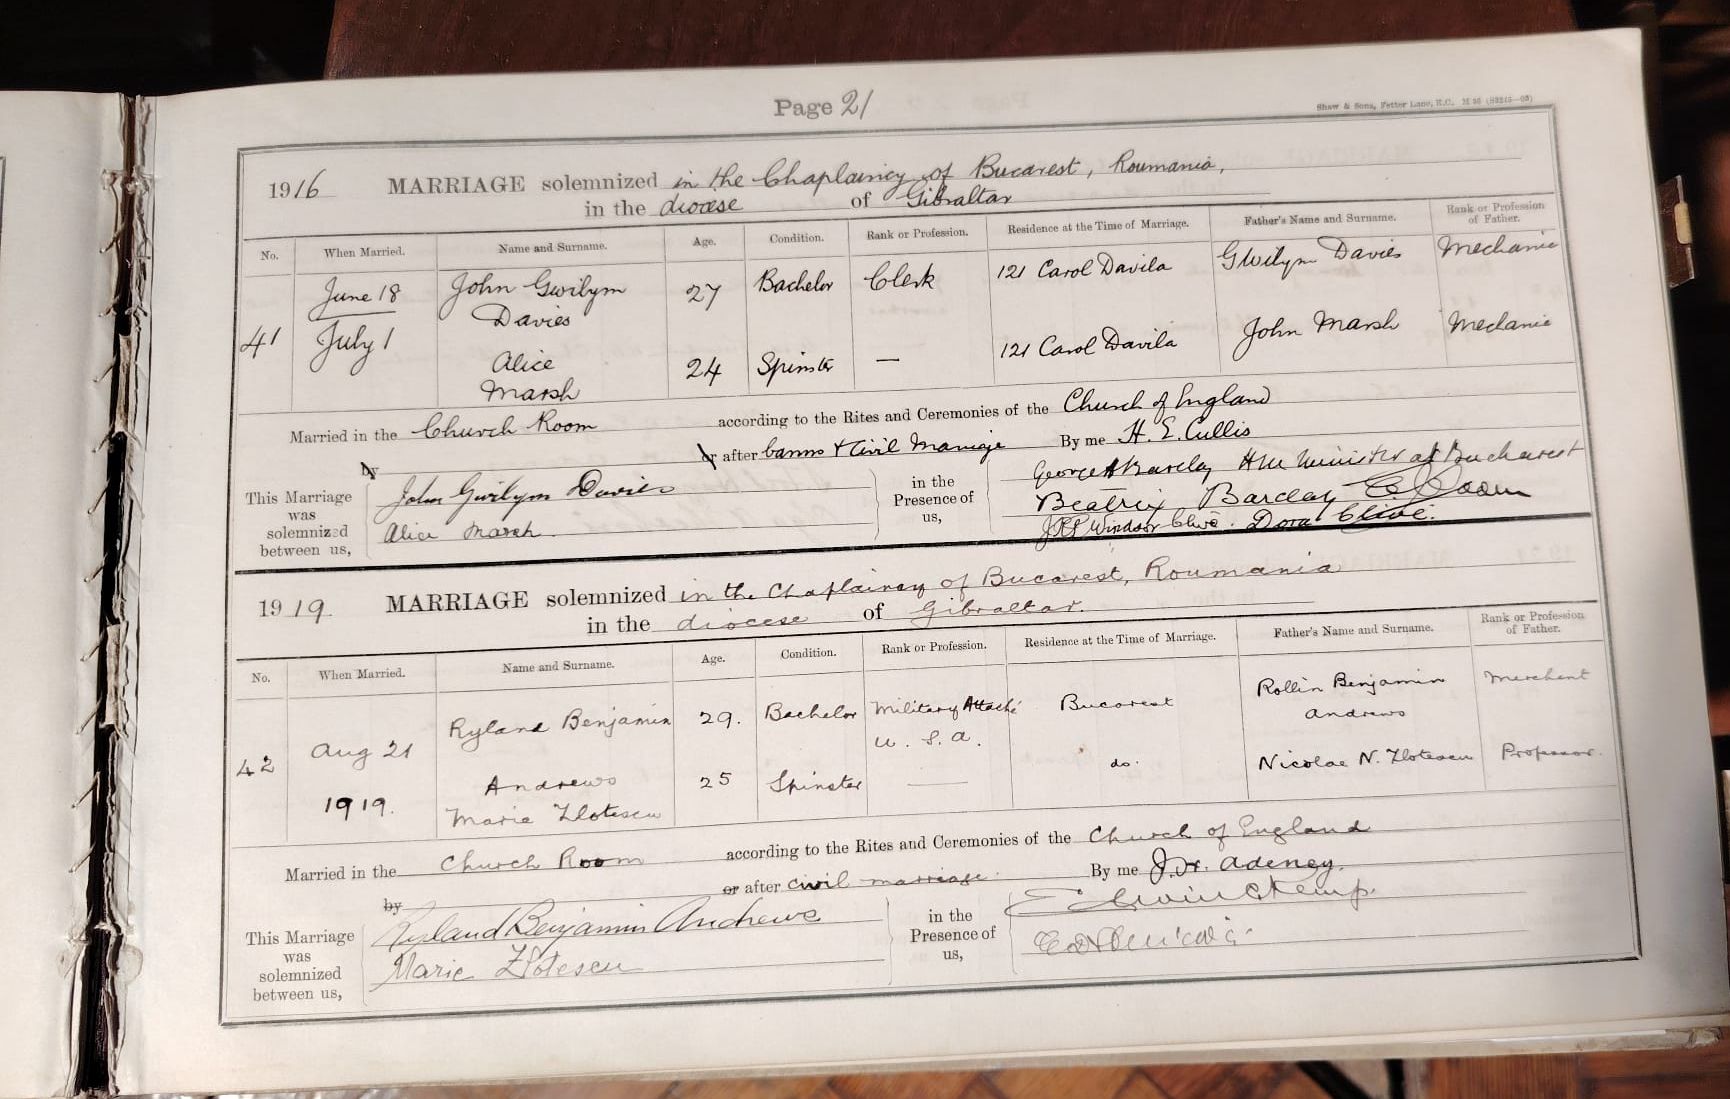 Page 21
Shaw & Sons, Fetter Lane, E.C.
1916 MARRIAGE solemnized in the Chaplaincy of Bucarest, Roumania,
in the diocese of Gibraltar
No. When Married. Name and Surname. Age. Condition. Rank or Profession. Residence at the Time of Marriage. Father's Name and Surname. Rank or Profession of Father.
41 June 18 John Gwilym Davies 27 Bachelor Clerk 121 Carol Davila Gwilym Davies Mechanic
July 1 Alice Marsh 24 Spinster — 121 Carol Davila John Marsh Mechanic
Married in the Church Room according to the Rites and Ceremonies of the Church of England
by or after banns & Civil Marriage By me H. E. Cullis
This Marriage was solemnized between us, John Gwilym Davies Alice Marsh
in the Presence of us, George H Barclay HM Minister at Bucharest
Beatrix Barclay
Windsor Clive. Dora Clive.
1919 MARRIAGE solemnized in the Chaplaincy of Bucarest, Roumania
in the diocese of Gibraltar.
No. When Married. Name and Surname. Age. Condition. Rank or Profession. Residence at the Time of Marriage. Father's Name and Surname. Rank or Profession of Father.
42 Aug 21 1919. Ryland Benjamin Andrews 29. Bachelor Military Attaché U.S.A. Bucarest Rollin Benjamin Andrews Merchant
Marie Zlotescu 25 Spinster — do. Nicolae N. Zlotescu Professor.
Married in the Church Room according to the Rites and Ceremonies of the Church of England
by or after civil marriage. By me J. H. Adeney.
This Marriage was solemnized between us, Ryland Benjamin Andrews
Marie Zlotescu
in the Presence of us,